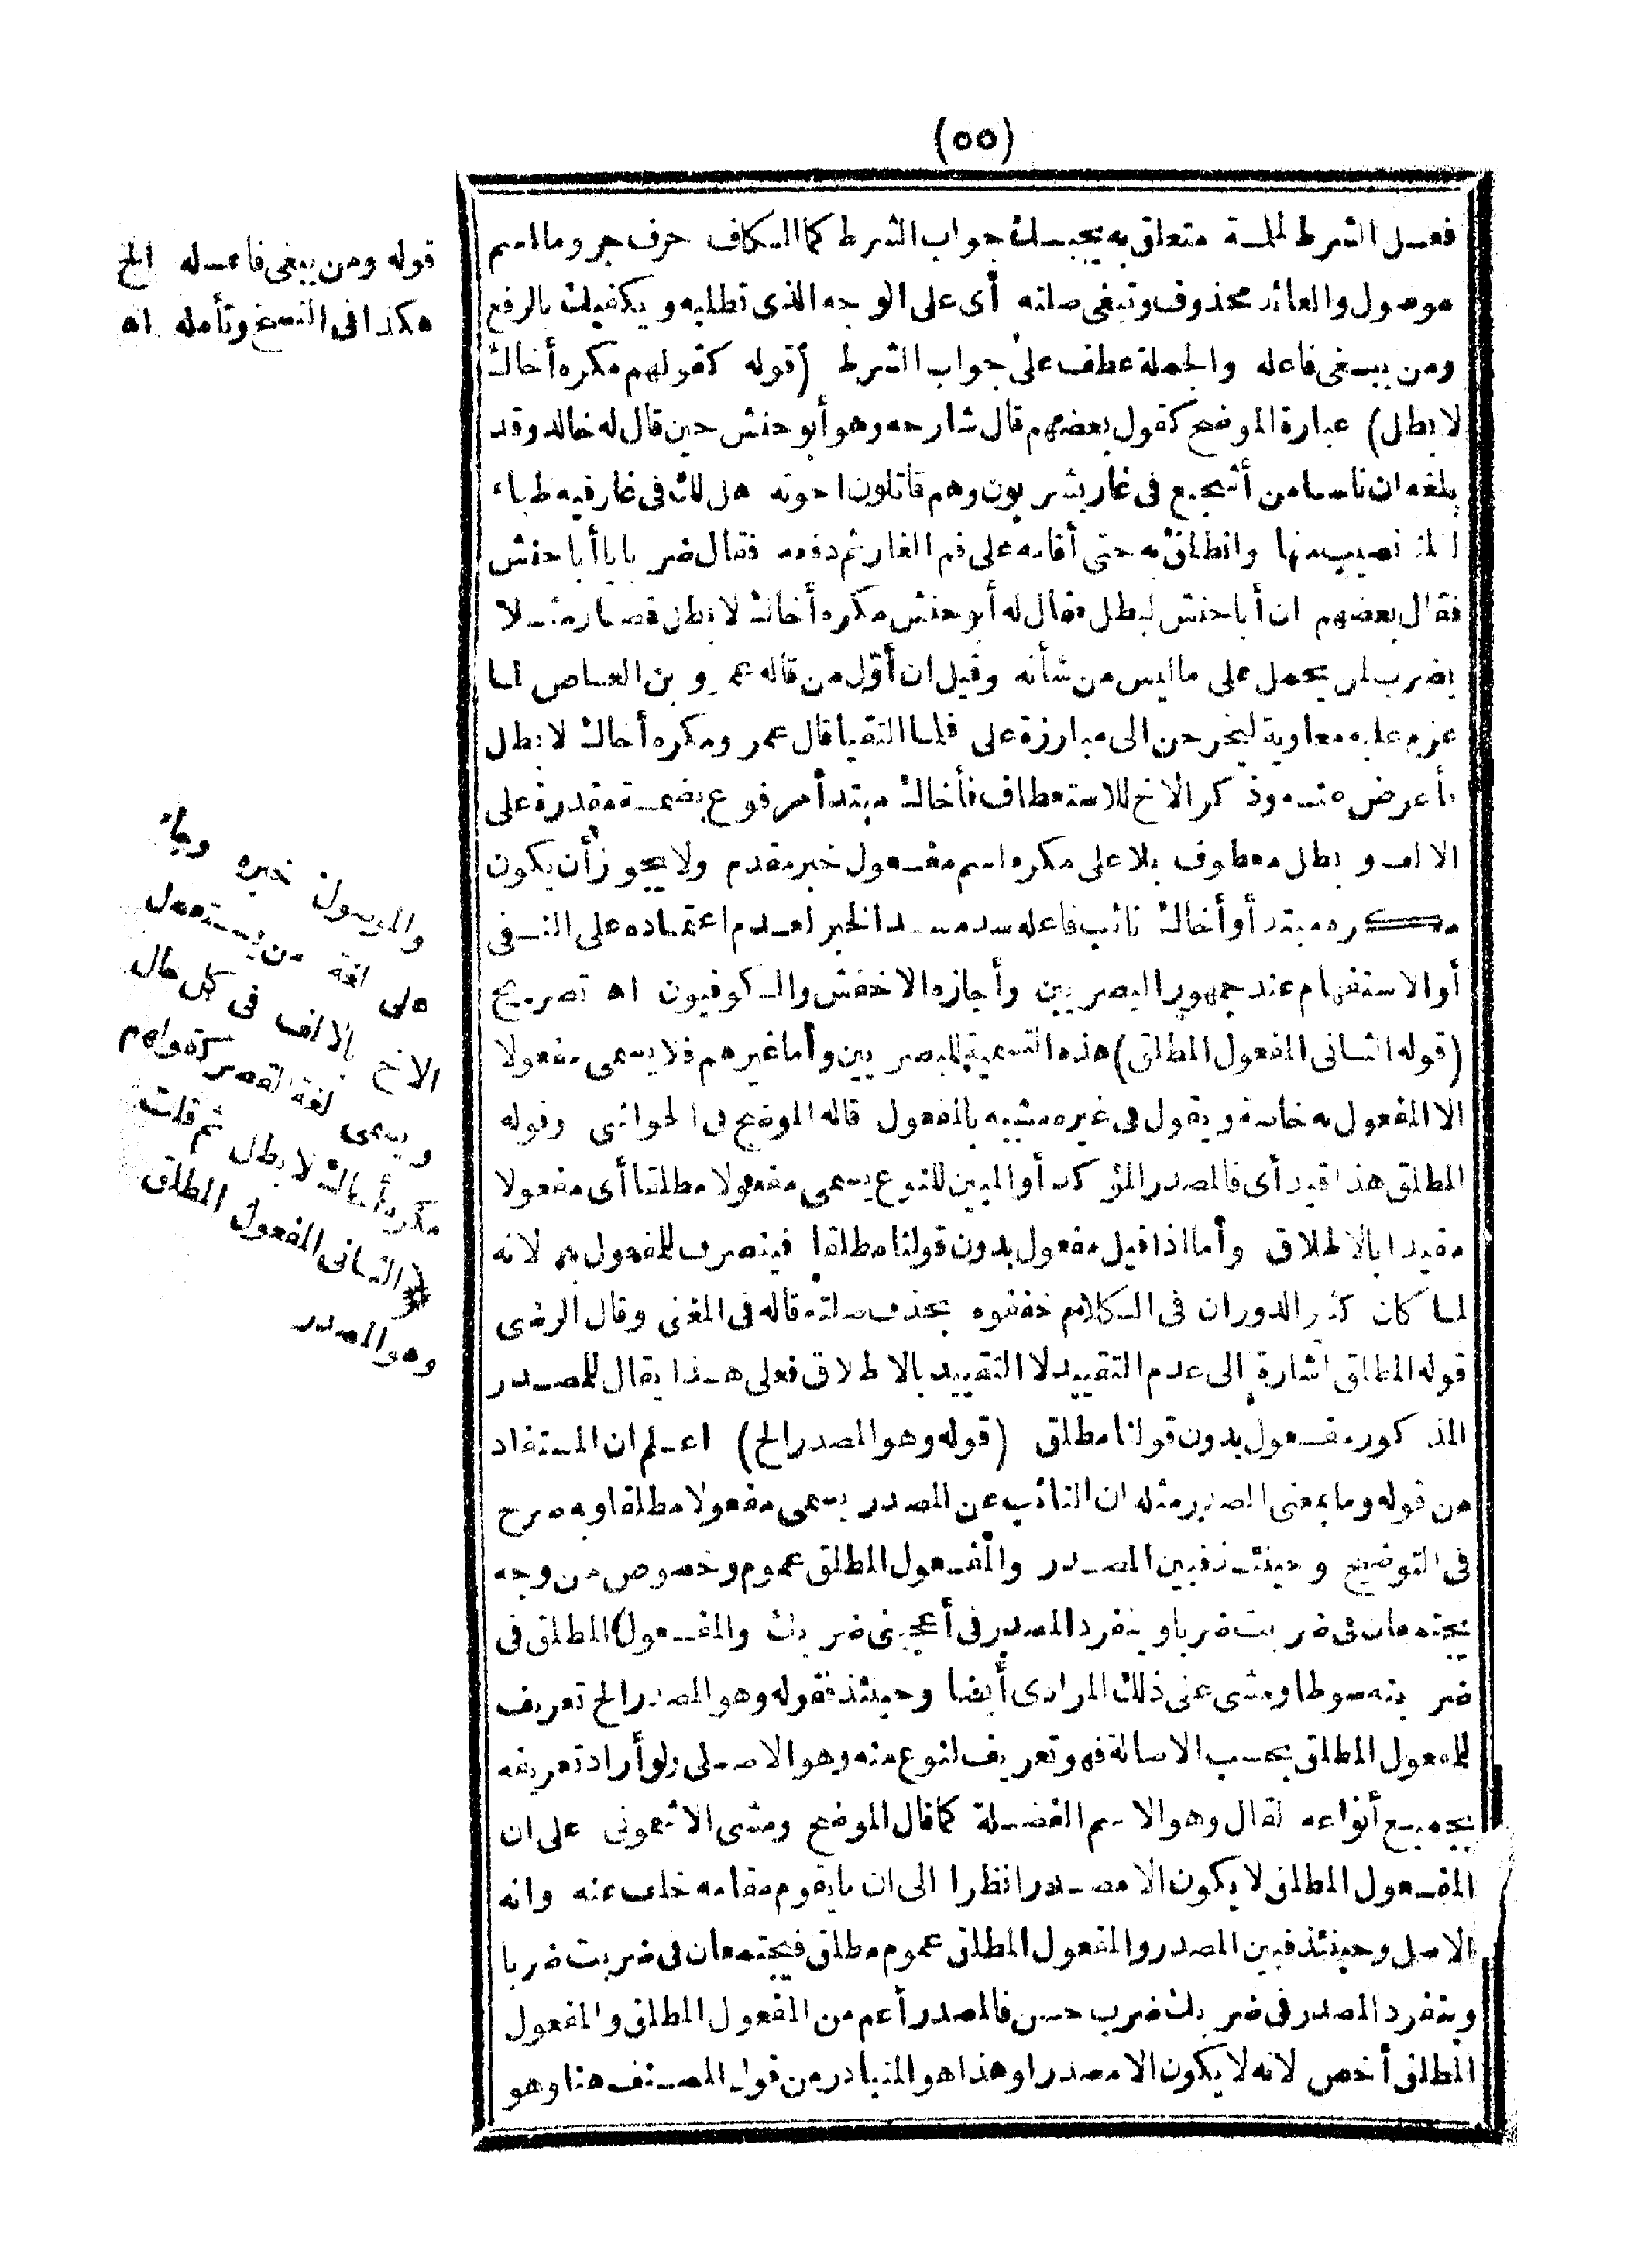 (٥٥)
فعل الشرط لملمة متعلق به يجبك جواب الشرط كما الكاف حرف جر وما اسم
موصول والعائد محذوف وتبغى صلته أى على الوجه الذى تطلبه و يكفيك بالرفع
ومن يبغى فاعله والجملة عطف على جواب الشرط (قوله كقولهم مكره أخاك
لا بطل) عبارة الموضح كقول بعضهم قال شارحه وهو أبو حنش حين قال له خاله وقد
بلغه ان ناسا من أشجع فى غار يشربون وهم قاتلون اخوته هل لك فى غار فيه ظباء
لنا نصيب منها وانطلق به حتى أقامه على فم الغار ثم دفعه فقال ضربا يا أبا حنش
فقال بعضهم ان أبا حنش لبطل فقال له أبو حنش مكره أخاك لا بطل فصار مثلا
يضرب لمن يحمل على ما ليس من شأنه وقيل ان أول من قاله عمرو بن العاص لما
عزم عليه معاوية ليخرجن الى مبارزة على فلما التقيا قال عمرو مكره أخاك لا بطل
فأعرض عنه وذكر الاخ للاستعطاف فأخاك مبتدأ مرفوع بضمة مقدرة على
الالف و بطل معطوف بلا على مكره اسم مفعول خبر مقدم ولا يجوز أن يكون
مكره مبتدأ وأخاك نائب فاعله سد مسد الخبر لعدم اعتماده على النفى
أو الاستفهام عند جمهور البصريين وأجازه الاخفش والكوفيون اه تصريح
(قوله الثانى المفعول المطلق) هذه التسمية للبصريين وأما غيرهم فلا يسمى مفعولا
الا المفعول به خاصة و يقول فى غيره مشبه بالمفعول قاله الموضح فى الحواشى وقوله
المطلق هذا قيد أى فالمصدر المؤكد أو المبين للنوع يسمى مفعولا مطلقا أى مفعولا
مقيدا بالاطلاق وأما اذا قيل مفعول بدون قولنا مطلقا فينصرف للمفعول به لانه
لما كان كثير الدوران فى الكلام خففوه بحذف صلته قاله فى المغنى وقال الرضى
قوله المطلق اشارة الى عدم التقييد لا التقييد بالاطلاق فعلى هذا يقال للمصدر
المذكور مفعول بدون قولنا مطلق (قوله وهو المصدر الخ) اعلم ان المستفاد
من قوله وما بمعنى المصدر مثله ان النائب عن المصدر يسمى مفعولا مطلقا وبه صرح
فى التوضيح وحينئذ فبين المصدر والمفعول المطلق عموم وخصوص من وجه
يجتمعان فى ضربت ضربا وينفرد المصدر فى أعجبنى ضربك والمفعول المطلق فى
ضربته سوطا ومشى على ذلك المرادى أيضا وحينئذ فقوله وهو المصدر الخ تعريف
للمفعول المطلق بحسب الاصالة فهو تعريف لنوع منه وهو الاصلى ولو أراد تعريفه
بجميع أنواعه لقال وهو الاسم الفضلة كما قال الموضح ومشى الاشمونى على ان
المفعول المطلق لا يكون الا مصدرا نظرا الى ان ما يقوم مقامه خلف عنه وانه
الاصل وحينئذ فبين المصدر والمفعول المطلق عموم مطلق فيجتمعان فى ضربت ضربا
وينفرد المصدر فى ضربك ضرب حسن فالمصدر أعم من المفعول المطلق والمفعول
المطلق أخص لانه لا يكون الا مصدرا وهذا هو المتبادر من قول المصنف هنا وهو
قوله ومن يبغى فاعله الخ
هكذا فى النسخ وتأمله اه
والموصول خبره وجاء
على لغة من يستعمل
الاخ بالالف فى كل حال
ويسمى لغة القصر كقولهم
مكره أخاك لا بطل ثم قلت
(الثانى المفعول المطلق
وهو المصدر